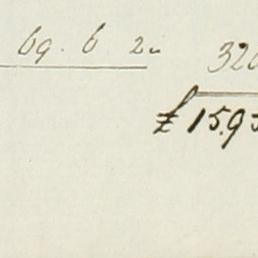 69. 6. 2.. 320
£ 15.95